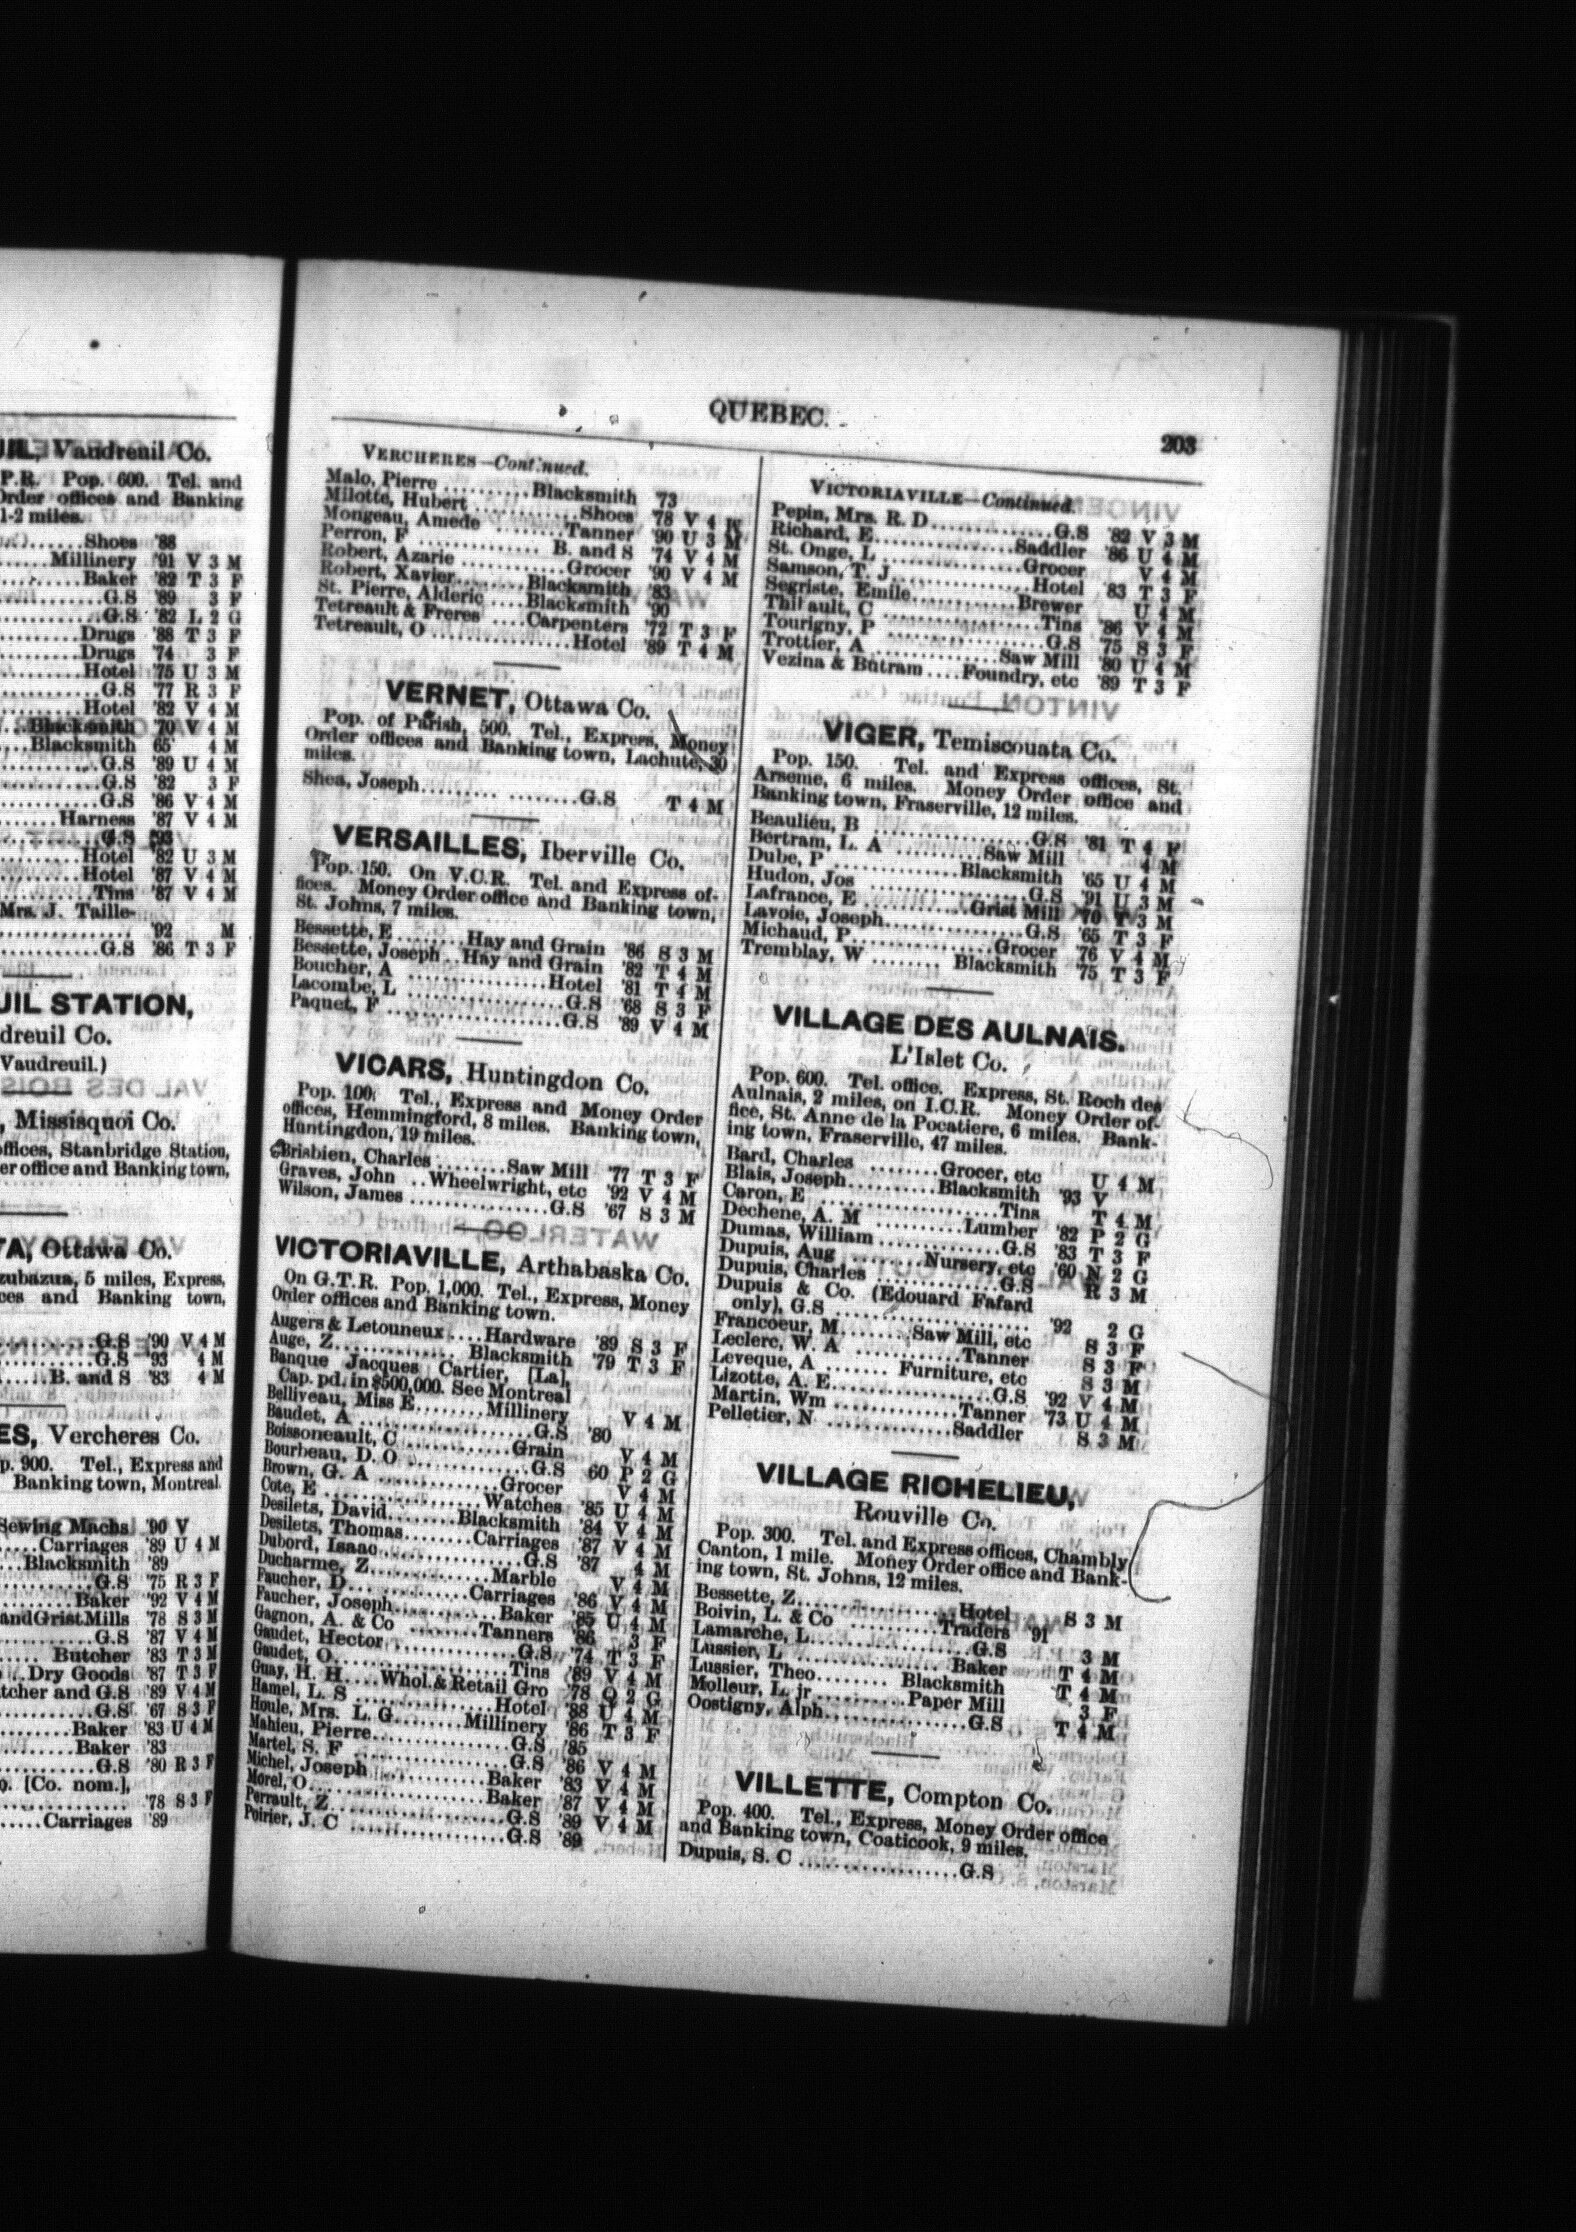 UIL, Vaudreuil Co.
P.R. Pop. 600. Tel. and
Order offices and Banking
1-2 miles.
......Shoes '88
......Millinery '91 V 3 M
......Baker '82 T 3 F
......G.S '89 3 F
......G.S '82 L 2 G
......Drugs '88 T 3 F
......Drugs '74 3 F
......Hotel '75 U 3 M
......G.S '77 R 3 F
......Hotel '82 V 4 M
......Blacksmith '70 V 4 M
......Blacksmith 65' 4 M
......G.S '89 U 4 M
......G.S '82 3 F
......G.S '86 V 4 M
......Harness '87 V 4 M
......G.S '93
......Hotel '82 U 3 M
......Hotel '87 V 4 M
......Tins '87 V 4 M
Mrs. J. Taille-
...... '92 M
......G.S '86 T 3 F
UIL STATION,
dreuil Co.
Vaudreuil.)
, Missisquoi Co.
offices, Stanbridge Station,
er office and Banking town,
TA, Ottawa Co.
zubazua, 5 miles, Express,
ces and Banking town,
......G.S '90 V 4 M
......G.S '93 4 M
......B. and S '83 4 M
ES, Vercheres Co.
p. 900. Tel., Express and
Banking town, Montreal.
Sewing Machs '90 V
......Carriages '89 U 4 M
......Blacksmith '89
......G.S '75 R 3 F
......Baker '92 V 4 M
and Grist Mills '78 S 3 M
......G.S '87 V 4 M
......Butcher '83 T 3 M
......Dry Goods '87 T 3 F
tcher and G.S '89 V 4 M
......G.S '67 S 3 F
......Baker '83 U 4 M
......Baker '83
......G.S '80 R 3 F
o. [Co. nom.],
...... '78 S 3 F
......Carriages '89
QUEBEC.
203
VERCHERES—Continued.
Malo, Pierre ..........Blacksmith '73
Milotte, Hubert ............Shoes '78 V 4 M
Mongeau, Amede ........Tanner '90 U 3 M
Perron, F ..............B. and S '74 V 4 M
Robert, Azarie ............Grocer '90 V 4 M
Robert, Xavier........Blacksmith '83
St. Pierre, Alderic ....Blacksmith '90
Tetreault & Freres ....Carpenters '72 T 3 F
Tetreault, O ................Hotel '89 T 4 M
VERNET, Ottawa Co.
Pop. of Parish, 500. Tel., Express, Money
Order offices and Banking town, Lachute, 30
miles.
Shea, Joseph.................G.S T 4 M
VERSAILLES, Iberville Co.
Pop. 150. On V.C.R. Tel. and Express of-
fices. Money Order office and Banking town,
St. Johns, 7 miles.
Bessette, E ........Hay and Grain '86 S 3 M
Bessette, Joseph ..Hay and Grain '82 T 4 M
Boucher, A .............Hotel '81 T 4 M
Lacombe, L ..................G.S '68 S 3 F
Paquet, F ....................G.S '89 V 4 M
VICARS, Huntingdon Co.
Pop. 100. Tel., Express and Money Order
offices, Hemmingford, 8 miles. Banking town,
Huntingdon, 19 miles.
Brisbien, Charles ........Saw Mill '77 T 3 F
Graves, John ..Wheelwright, etc '92 V 4 M
Wilson, James ................G.S '67 S 3 M
VICTORIAVILLE, Arthabaska Co.
On G.T.R. Pop. 1,000. Tel., Express, Money
Order offices and Banking town.
Augers & Letouneux ....Hardware '89 S 3 F
Auge, Z..............Blacksmith '79 T 3 F
Banque Jacques Cartier, [La],
Cap. pd. in $500,000. See Montreal
Belliveau, Miss E........Millinery V 4 M
Baudet, A ....................G.S '80
Boissoneault, C ............Grain V 4 M
Bourbeau, D. O ..............G.S 60 P 2 G
Brown, G. A ..............Grocer V 4 M
Cote, E ..................Watches '85 U 4 M
Desilets, David........Blacksmith '84 V 4 M
Desilets, Thomas........Carriages '87 V 4 M
Dubord, Isaac................G.S '87 4 M
Ducharme, Z..............Marble V 4 M
Faucher, D..............Carriages '86 V 4 M
Faucher, Joseph............Baker '85 U 4 M
Gagnon, A. & Co ........Tanners '86 3 F
Gaudet, Hector ..............G.S '74 T 3 F
Gaudet, O..................Tins '89 V 4 M
Guay, H. H....Whol.& Retail Gro '78 Q 2 G
Hamel, L. S ..............Hotel '88 U 4 M
Houle, Mrs. L. G........Millinery '86 T 3 F
Mahieu, Pierre................G.S '85
Martel, S. F ..................G.S '86 V 4 M
Michel, Joseph ............Baker '83 V 4 M
Morel, O..................Baker '87 V 4 M
Perrault, Z ..................G.S '89 V 4 M
Poirier, J. C ................G.S '89
VICTORIAVILLE—Continued.
Pepin, Mrs. R. D..............G.S '82 V 3 M
Richard, E..............Saddler '86 U 4 M
St. Onge, L ..............Grocer V 4 M
Samson, T. J..............Hotel '83 T 3 F
Segriste, Emile............Brewer U 4 M
Thibault, C ................Tins '86 V 4 M
Tourigny, P ..................G.S '75 S 3 F
Trottier, A ............Saw Mill '80 U 4 M
Vezina & Butram ....Foundry, etc '89 T 3 F
VIGER, Temiscouata Co.
Pop. 150. Tel. and Express offices, St.
Arseme, 6 miles. Money Order office and
Banking town, Fraserville, 12 miles.
Beaulieu, B ..................G.S '81 T 4 F
Bertram, L. A ..........Saw Mill 4 M
Dube, P ..............Blacksmith '65 U 4 M
Hudon, Jos ..................G.S '91 U 3 M
Lafrance, E ..........Grist Mill '70 T 3 M
Lavoie, Joseph................G.S '65 T 3 F
Michaud, P................Grocer '76 V 4 M
Tremblay, W ........Blacksmith '75 T 3 F
VILLAGE DES AULNAIS.
L'Islet Co.
Pop. 600. Tel. office. Express, St. Roch des
Aulnais, 2 miles, on I.C.R. Money Order of-
fice, St. Anne de la Pocatiere, 6 miles. Bank-
ing town, Fraserville, 47 miles.
Bard, Charles ........Grocer, etc U 4 M
Blais, Joseph..........Blacksmith '93 V
Caron, E ....................Tins T 4 M
Dechene, A. M ..........Lumber '82 P 2 G
Dumas, William ..............G.S '83 T 3 F
Dupuis, Aug ........Nursery, etc '60 N 2 G
Dupuis, Charles ..............G.S R 3 M
Dupuis & Co. (Edouard Fafard
only), G.S .................. '92 2 G
Francoeur, M........Saw Mill, etc S 3 F
Leclerc, W. A ............Tanner S 3 F
Leveque, A ......Furniture, etc S 3 M
Lizotte, A. E..................G.S '92 V 4 M
Martin, Wm ..............Tanner '73 U 4 M
Pelletier, N ..............Saddler S 3 M
VILLAGE RICHELIEU,
Rouville Co.
Pop. 300. Tel. and Express offices, Chambly
Canton, 1 mile. Money Order office and Bank-
ing town, St. Johns, 12 miles.
Bessette, Z................Hotel S 3 M
Boivin, L. & Co ..........Traders '91
Lamarche, L..................G.S 3 M
Lussier, L ................Baker T 4 M
Lussier, Theo..........Blacksmith T 4 M
Molleur, L. jr..........Paper Mill 3 F
Oostigny, Alph................G.S T 4 M
VILLETTE, Compton Co.
Pop. 400. Tel., Express, Money Order office
and Banking town, Coaticook, 9 miles.
Dupuis, S. C ..................G.S